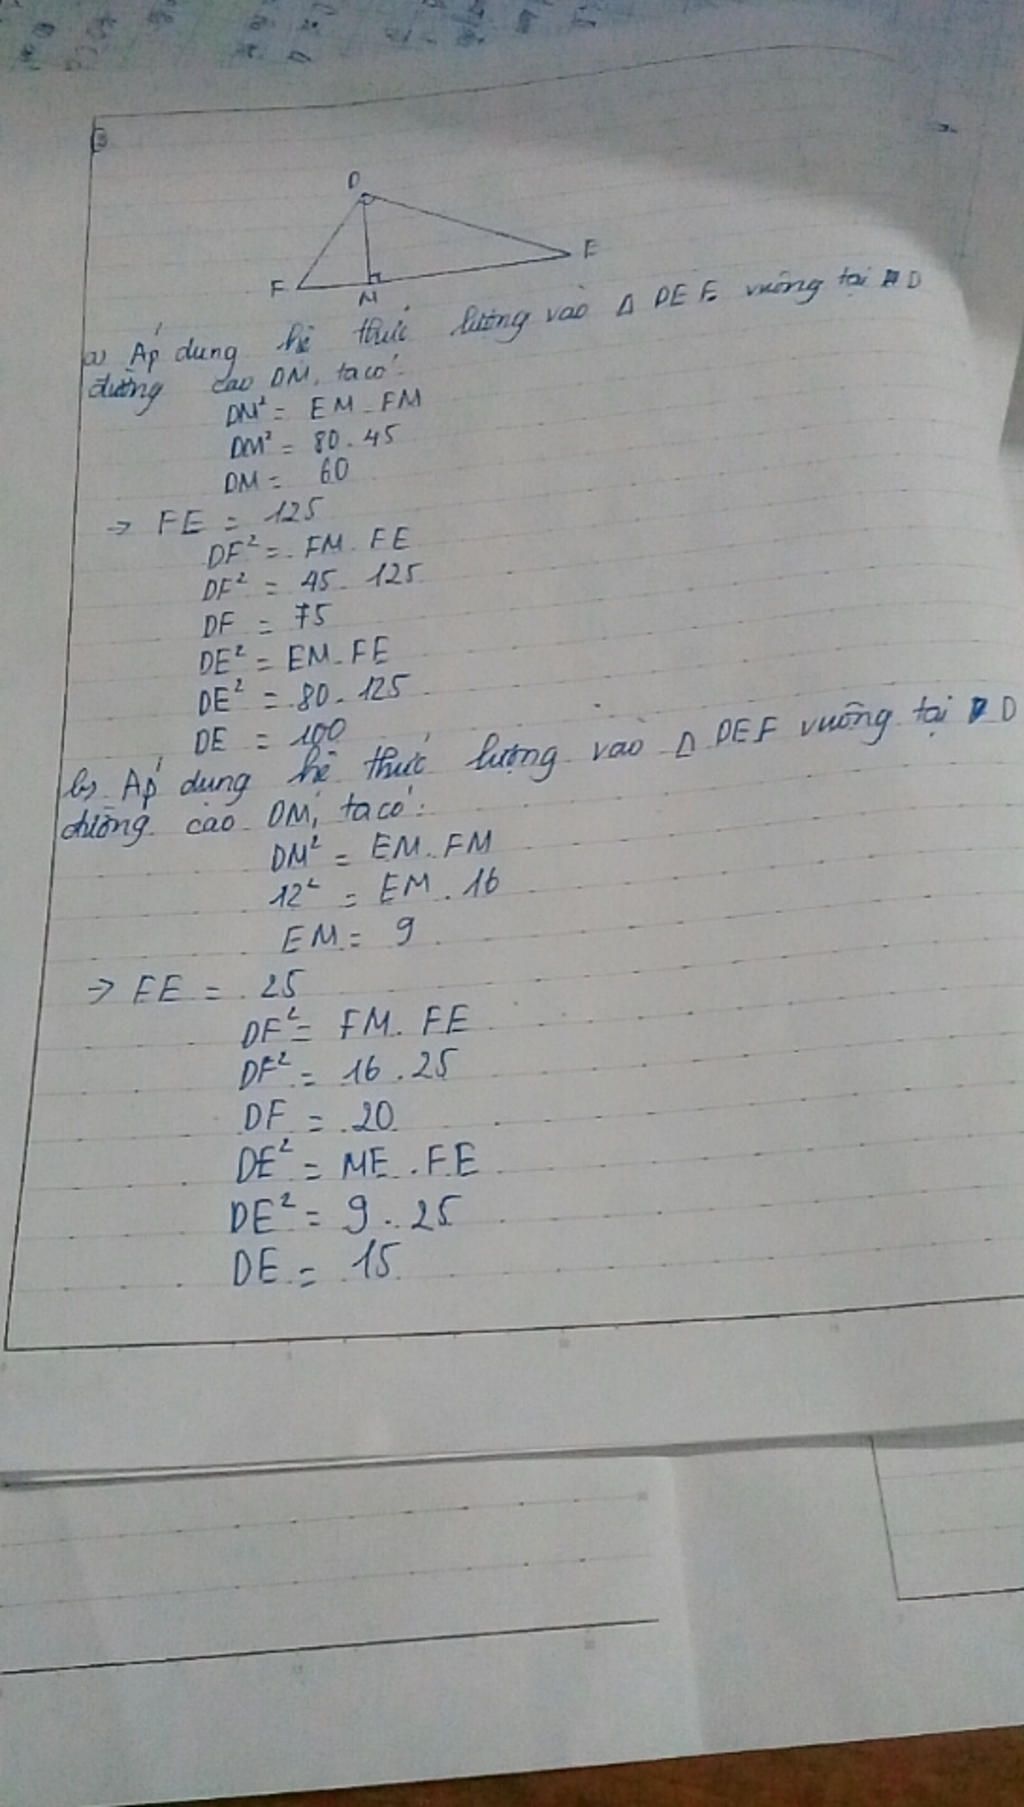 D
F
M
E
a) Áp dụng hệ thức lượng vào Δ DEF vuông tại D
đường cao DM, ta có:
DM² = EM.FM
DM² = 80.45
DM = 60
→ FE = 125
DF² = FM.FE
DF² = 45.125
DF = 75
DE² = EM.FE
DE² = 80.125
DE = 100
b) Áp dụng hệ thức lượng vào Δ DEF vuông tại D
đường cao DM, ta có:
DM² = EM.FM
12² = EM.16
EM = 9
→ FE = 25
DF² = FM.FE
DF² = 16.25
DF = 20
DE² = ME.FE
DE² = 9.25
DE = 15